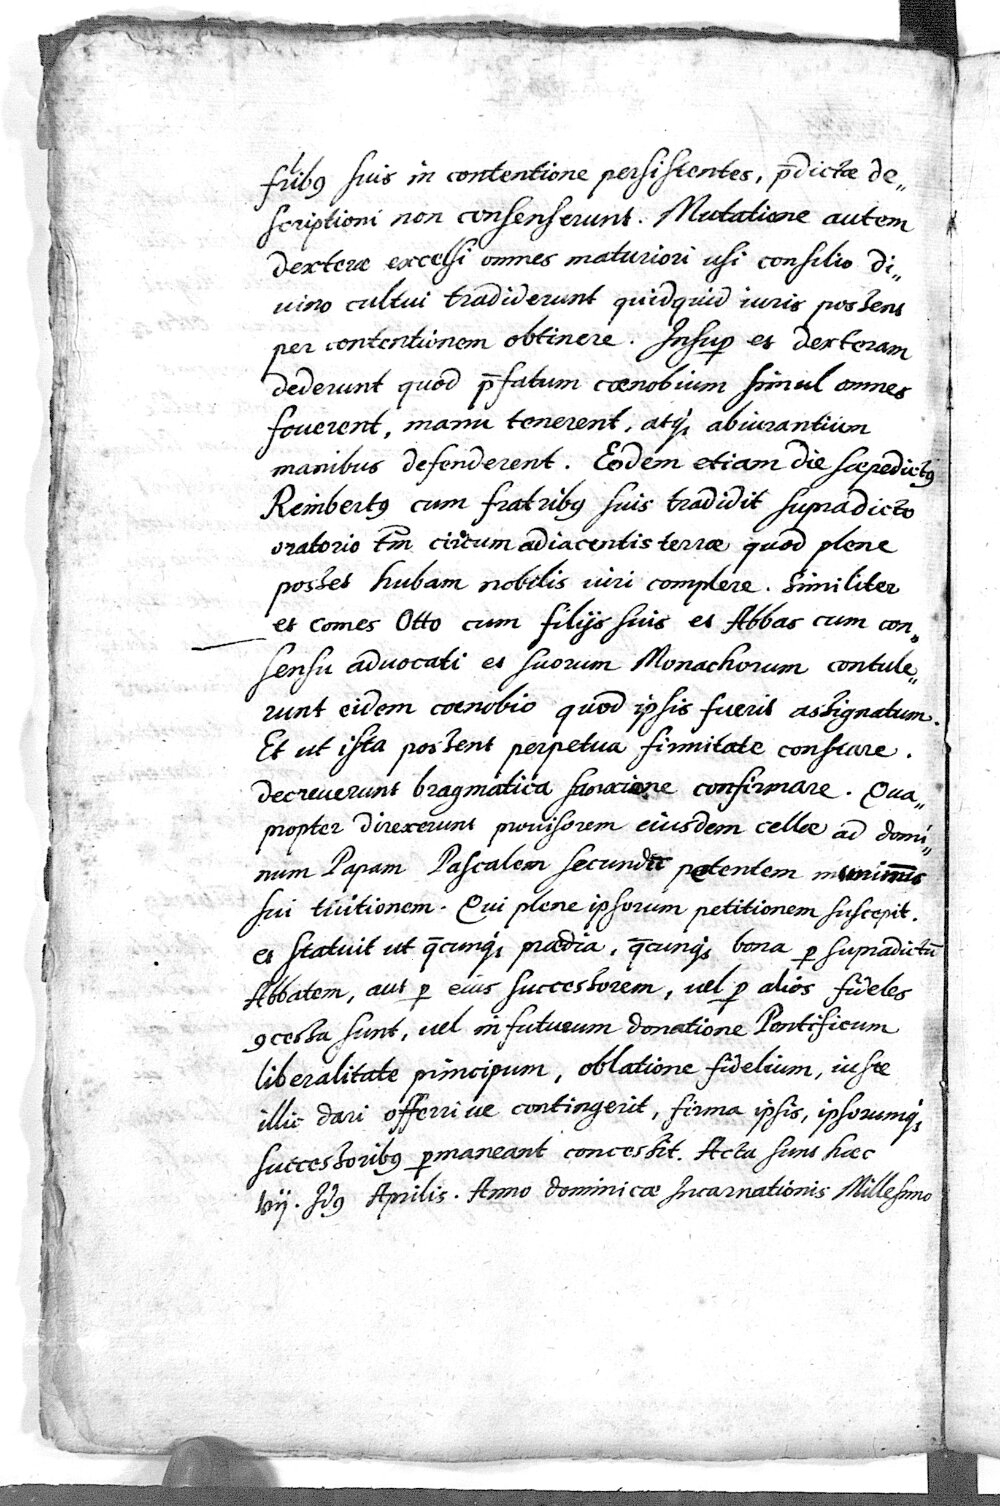 fribꝰ suis in contentione persistentes, p̄dictæ de„
scriptioni non consenserunt. Mutatione autem
dexteræ excelsi omnes maturiori usi consilio di„
uino cultui tradiderunt quidquid iuris possent
per contentionem obtinere. Insuꝑ et dexteram
dederunt quod p̄fatum cœnobium simul omnes
fouerent, manu tenerent, atqꝫ abiurantium
manibus defenderent. Eodem etiam die sæpedictꝰ
Reimbertꝰ cum fratribꝰ suis tradidit supradicto
oratorio tm̄ circum adiacentis terræ quod plene
posset hubam nobilis uiri complere. Similiter
et Comes Otto cum filijs suis et Abbas cum con„
sensu aduocati et suorum Monachorum contule„
runt eidem cœnobio quod ipsis fuerit assignatum.
Et ut ista possent perpetua firmitate constare.
decreuerunt bragmatica sanxione confirmare. Qua„
propter direxerunt prouisorem eiusdem cellæ ad domi„
num Papam Pascalem secundū petentem
sui tuitionem. Qui plene ipsorum petitionem suscepit.
et statuit ut q̄cunqꝫ prædia, q̄cunqꝫ bona ꝑ supradictū
Abbatem, aut ꝑ eius successorem, uel ꝑ alios fideles
ꝯcessa sunt, uel in futurum donatione Pontificum
liberalitate principum, oblatione fidelium, iuste
illic dari offerri ue contingerit, firma ipsis, ipsorumqꝫ
successoribꝰ ꝑmaneant concessit. Acta sunt hæc
vij. Idꝰ Aprilis. Anno dominicæ Incarnationis Millesimo